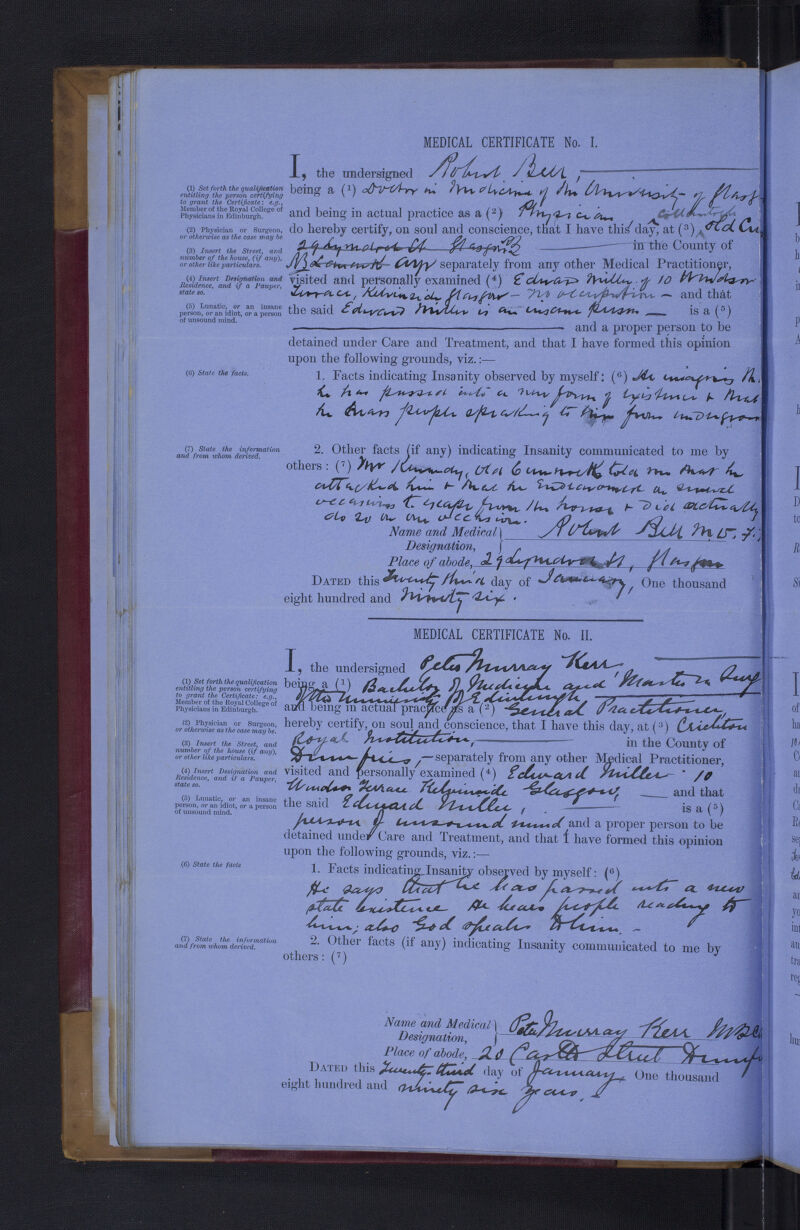 MEDICAL CERTIFICATE No. I.
I, the undersigned Robert Bell,
(1) Set forth the qualification
entitling the person certifying
to grant the Certificate; e.g.,
Member of the Royal College of
Physicians in Edinburgh.
being a (1) Doctor in Medicine of the University of Glasg
and being in actual practice as a (2) Physician
(2) Physician or Surgeon,
or otherwise as the case may be
do hereby certify, on soul and conscience, that I have this day, at (3) Old Cu
(3) Insert the Street, and
number of the house, (if any),
or other like particulars.
in the County of
Ayr separately from any other Medical Practitioner,
(4) Insert Designation and
Residence, and if a Pauper,
state so.
visited and personally examined (4) Edward Miller of 10 Windsor
Terrace, Kelvinside Glasgow - no occupation - and that
(5) Lunatic, or an insane
person, or an idiot, or a person
of unsound mind.
the said Edward Miller is an insane person is a (5)
and a proper person to be
detained under Care and Treatment, and that I have formed this opinion
upon the following grounds, viz.:—
(6) State the facts.
1. Facts indicating Insanity observed by myself: (6) He imagines th
he has passed into a new form of existence & that
he hears people speaking to him from undergroun
(7) State the information
and from whom derived.
2. Other facts (if any) indicating Insanity communicated to me by
others: (7) Mr Kennedy, Old Cumnock told me that he
attacked him & that he endeavoured on several
occasions to escape from the house & did actually
do so on one occasion.
Name and Medical
Designation,
Robert Bell M.D. F.
Place of abode, 29 St, Glasgow
DATED this Twenty third day of January, One thousand
eight hundred and Ninety six.
MEDICAL CERTIFICATE No. II.
I, the undersigned Peter Murray Kerr
(1) Set forth the qualification
entitling the person certifying
to grant the Certificate; e.g.,
Member of the Royal College of
Physicians in Edinburgh.
being a (1) Bachelor of Medicine and Master in Surg
of the University of Edinburgh
and being in actual practice as a (2) General Practitioner,
(2) Physician or Surgeon,
or otherwise as the case may be.
hereby certify, on soul and conscience, that I have this day, at (3) Crichton
(3) Insert the Street, and
number of the house (if any),
or other like particulars.
Royal Institution, in the County of
Dumfries, separately from any other Medical Practitioner,
(4) Insert Designation and
Residence, and if a Pauper,
state so.
visited and personally examined (4) Edward Miller 10
Windsor Terrace Kelvinside Glasgow, and that
(5) Lunatic, or an insane
person, or an idiot, or a person
of unsound mind.
the said Edward Miller, is a (5)
person of unsound mind and a proper person to be
detained under Care and Treatment, and that I have formed this opinion
upon the following grounds, viz.:—
(6) State the facts
1. Facts indicating Insanity observed by myself: (6)
He says that he has passed into a new
state existence He hears people reading to
him; also God speaks to him. -
(7) State the information
and from whom derived.
2. Other facts (if any) indicating Insanity communicated to me by
others: (7)
Name and Medical
Designation,
Peter Murray Kerr MB
Place of abode, 20 Castle Street Dumf
DATED this Twenty-third day of January, One thousand
eight hundred and ninety six years.